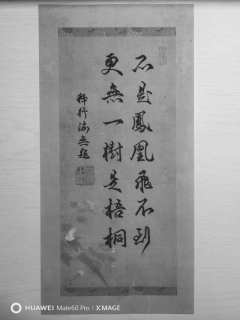 不是鳳凰飛不到
更無一樹是梧桐
HUAWEI Mate60 Pro | XMAGE